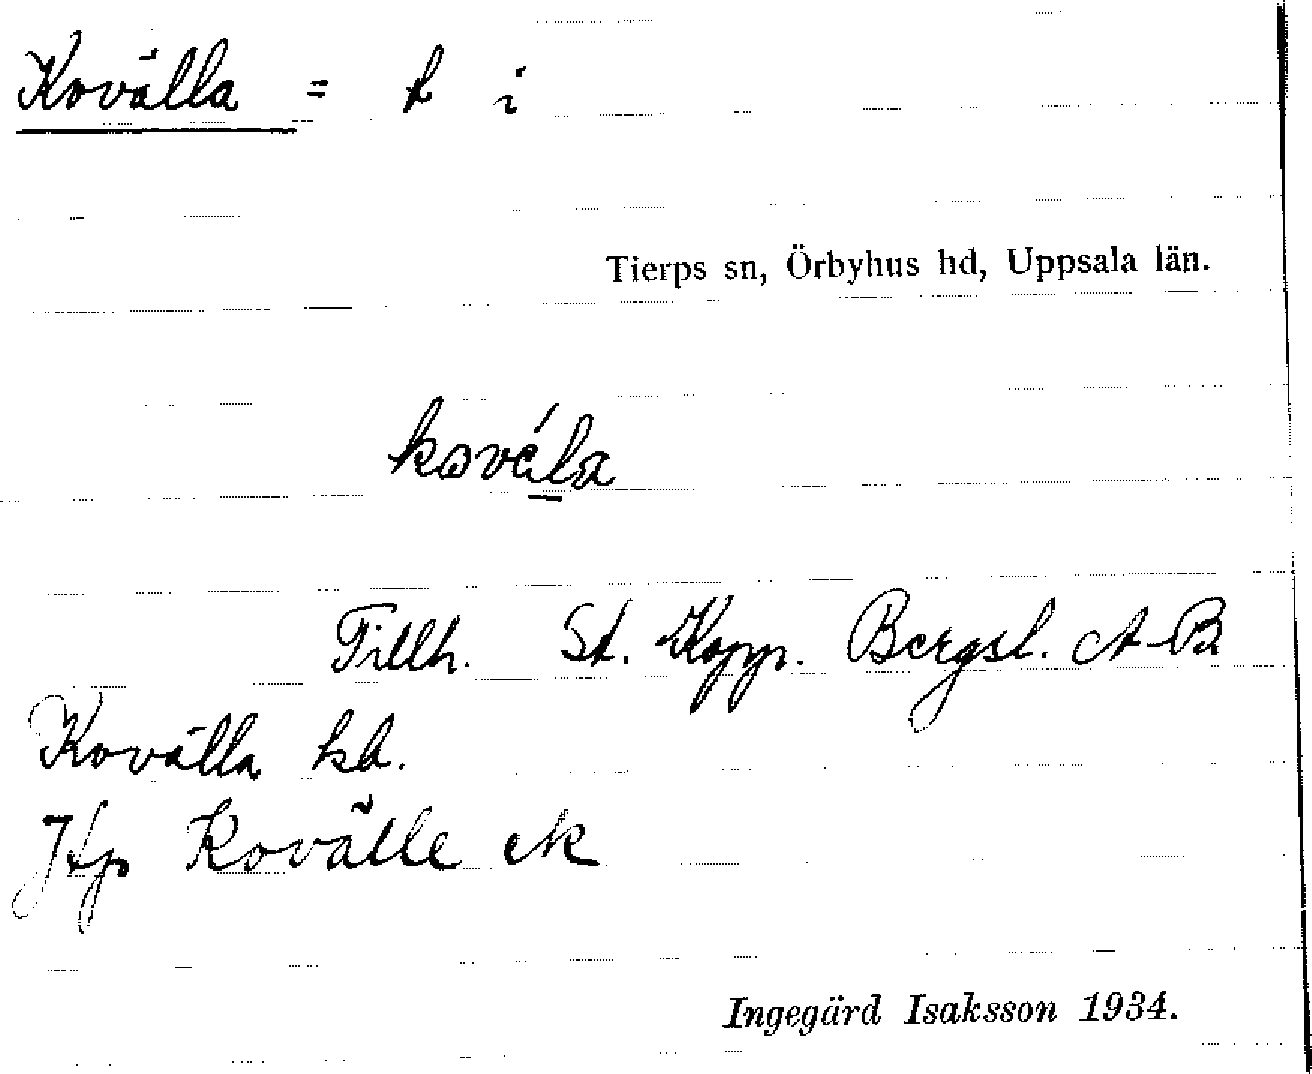 Kovälla = t i
Tierps sn, Örbyhus hd, Uppsala län.
kovä́la
Tillh. St. Kopp. Bergsl. A-B
Kovälla kb.
Jfp Kovälle ek
Ingegärd Isaksson 1934.